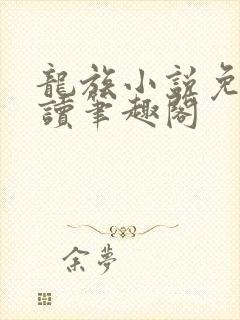 龍族小說免
讀筆趣閣
余夢